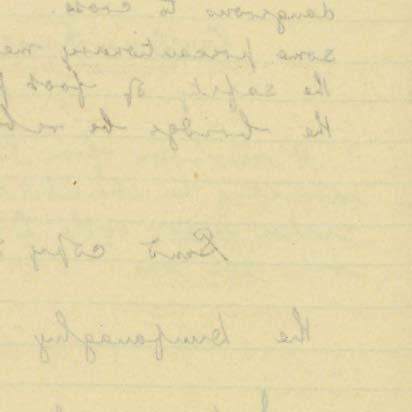 dangerous to cross.
some precautionary me
the safety of foot
the bridge be
Send copy
the Dunfanaghy